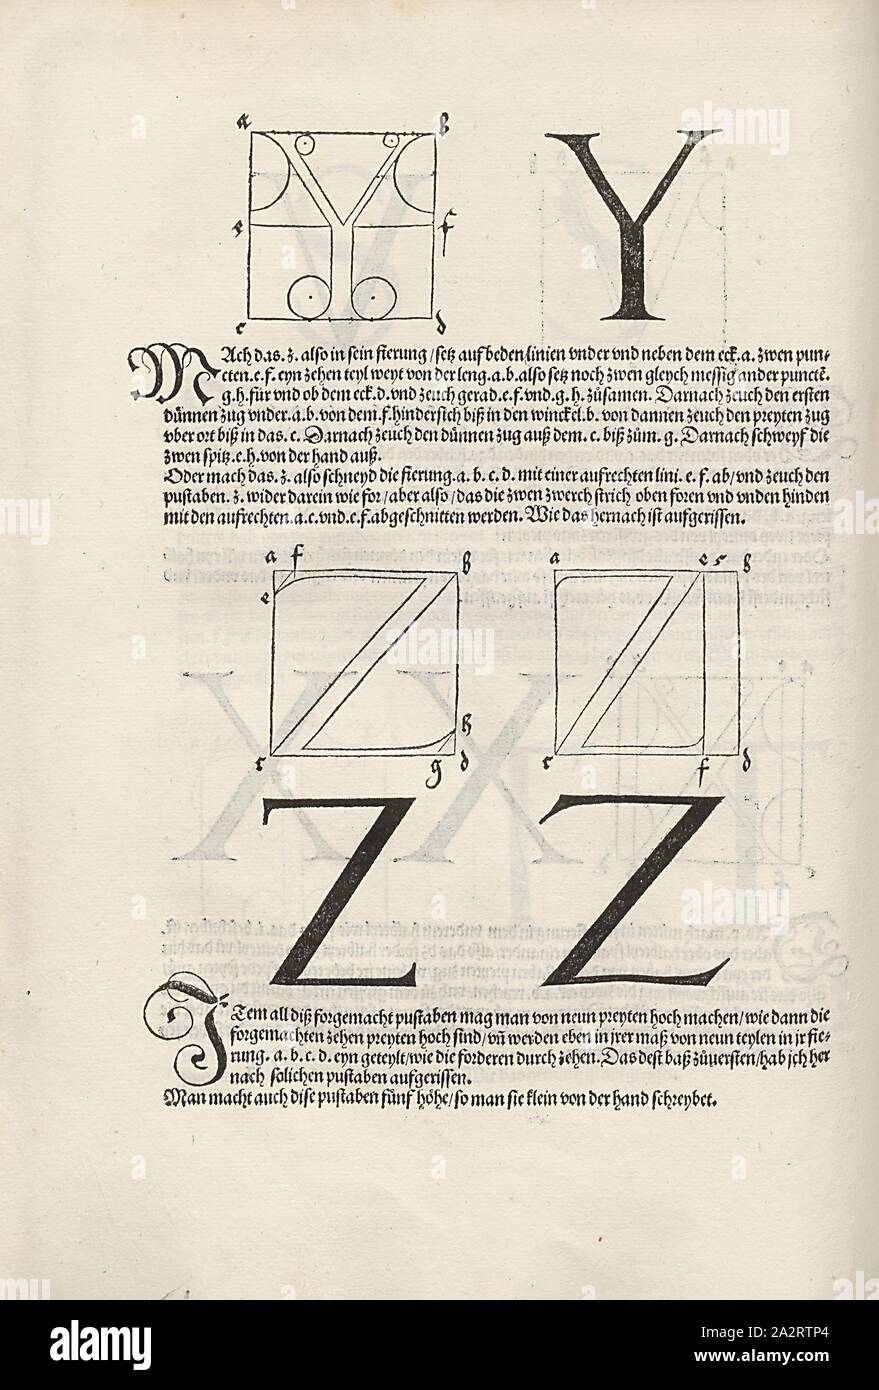 a b
Y
e f
c d
MAch das .z. also in sein fierung / setz auf beden linien vnder vnd neben dem eck .a. zwen pun⸗
cten .e.f. eyn zehen teyl weyt von der leng .a.b. also setz noch zwen gleych messig ander punctẽ.
g.h. für vnd ob dem eck .d. vnd zeuch gerad .e.f. vnd .g.h. zůsamen. Darnach zeuch den ersten
dünnen zug vnder .a.b. von dem .f. hindersich biß in den winckel .b. von dannen zeuch den preyten zug
vber ort biß in das .c. Darnach zeuch den dünnen zug auß dem .c. biß zům .g. Darnach schweyf die
zwen spitz .e.h. von der hand auß.
Oder mach das .z. also schneyd die fierung .a.b.c.d. mit einer aufrechten lini .e.f. ab / vnd zeuch den
pustaben .z. wider darein wie for / aber also / das die zwen zwerch strich oben foren vnd vnden hinden
mit den aufrechten .a.c. vnd .e.f. abgeschnitten werden. Wie das hernach ist aufgerissen.
a f b a e b
e
h
c g d c f d
Z Z
ITem all diß forgemacht pustaben mag man von neun preyten hoch machen / wie dann die
forgemachten zehen preyten hoch sind / vñ werden eben in jrer maß von neun teylen in jr fie⸗
rung .a.b.c.d. eyn geteylt / wie die forderen durch zehen. Das dest baß zůuersten / hab jch her
nach solichen pustaben aufgerissen.
Man macht auch dise pustaben fünf höhe / so man sie klein von der hand schreybet.
alamy
Image ID: 2A2RTP4
www.alamy.com